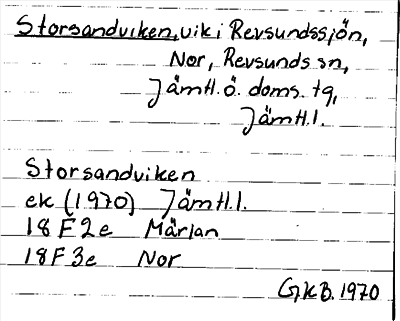 Storsandviken, vik i Revsundssjön,
Nor, Revsunds sn,
Jämtl. ö. doms. tg,
Jämtl. l.
Storsandviken
ek (1970) Jämtl. l.
18 F 2e Märlan
18 F 3e Nor
GKB. 1970